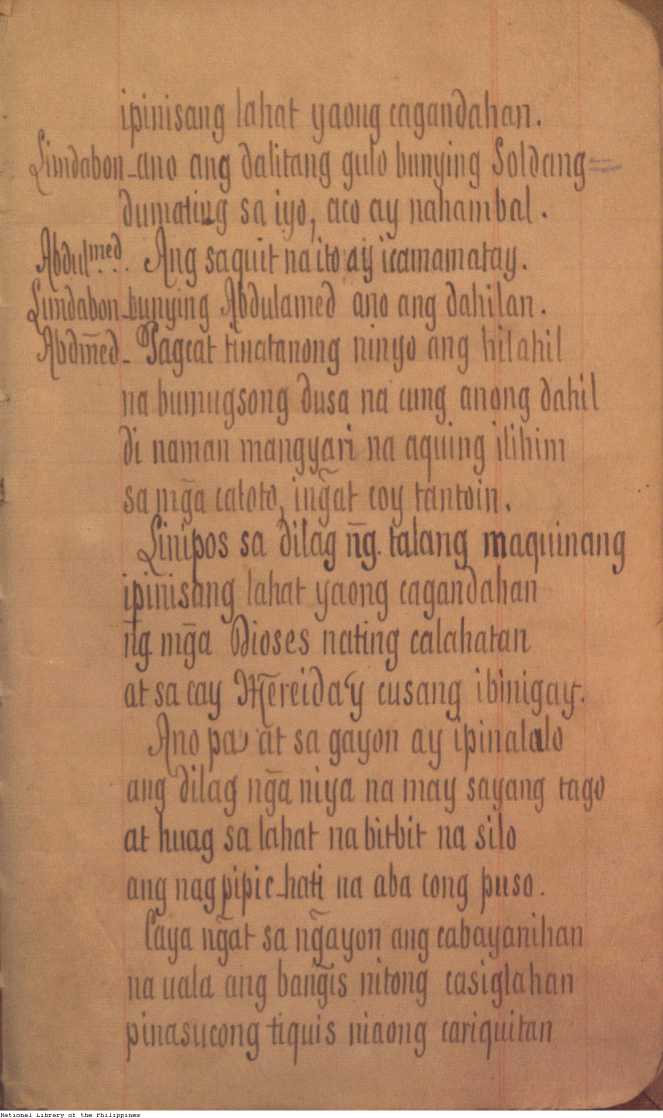 ipinisang lahat yaong cagandahan.
Limdabon - ano ang dalitang gulo bunying Soldang =
dumating sa iyo, aco ay nahambal.
Abdulmed. Ang saquit na ito ay icamamatay.
Limdabon - bunying Abdulamed ano ang dahilan.
Abdmed - Pagcat tinatanong ninyo ang hilahil
na bumugsong dusa na cung anong dahil
di naman mangyari na aquing ilihim
sa mg̃a catoto, ing̃at coy tantoin.
Linipos sa dilag ñg. talang maquinang
ipinisang lahat yaong cagandahan
ñg mg̃a Dioses nating calahatan
at sa cay Mereida'y cusang ibinigay.
Ano pa at sa gayon ay ipinalalo
ang dilag ng̃a niya na may sayang tago
at huag sa lahat na bitbit na silo
ang nagpipic-hati na aba cong puso.
Caya ng̃at sa ng̃ayon ang cabayanihan
na uala ang bang̃is nitong casiglahan
pinasucong tiquis niaong cariquitan
National Library of the Philippines